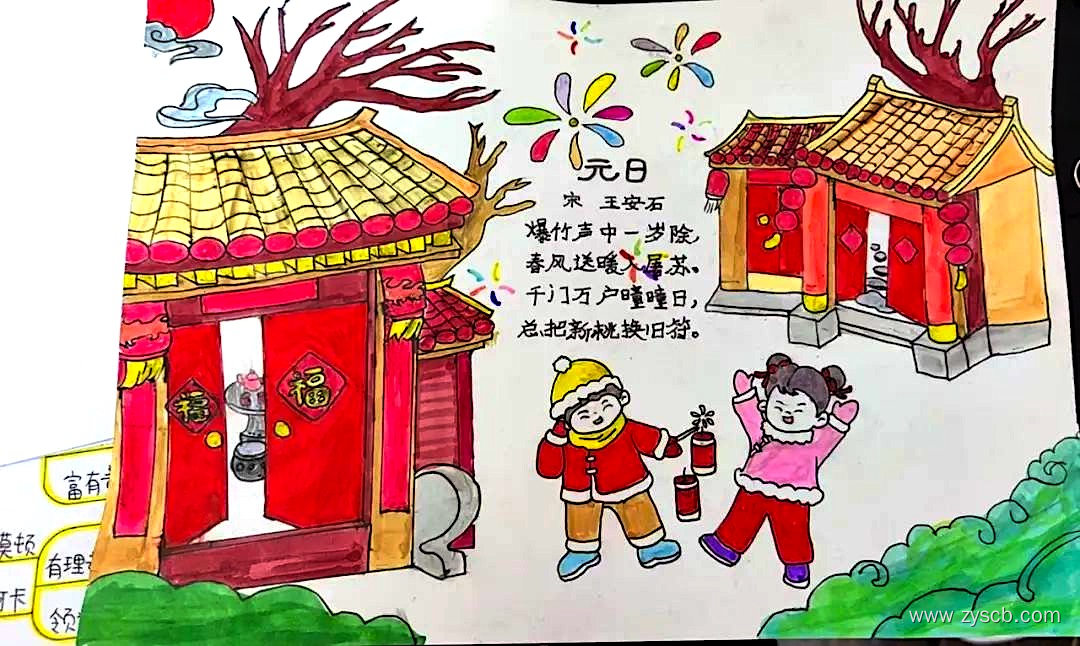 元日
宋 王安石
爆竹声中一岁除,
春风送暖入屠苏。
千门万户曈曈日,
总把新桃换旧符。
福
福
富有
莫顿
有理
卡
领
www.zyscb.com